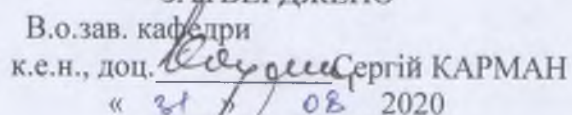 В.о.зав. кафедри
к.е.н., доц. Сергій КАРМАН
« 31 » 08 2020